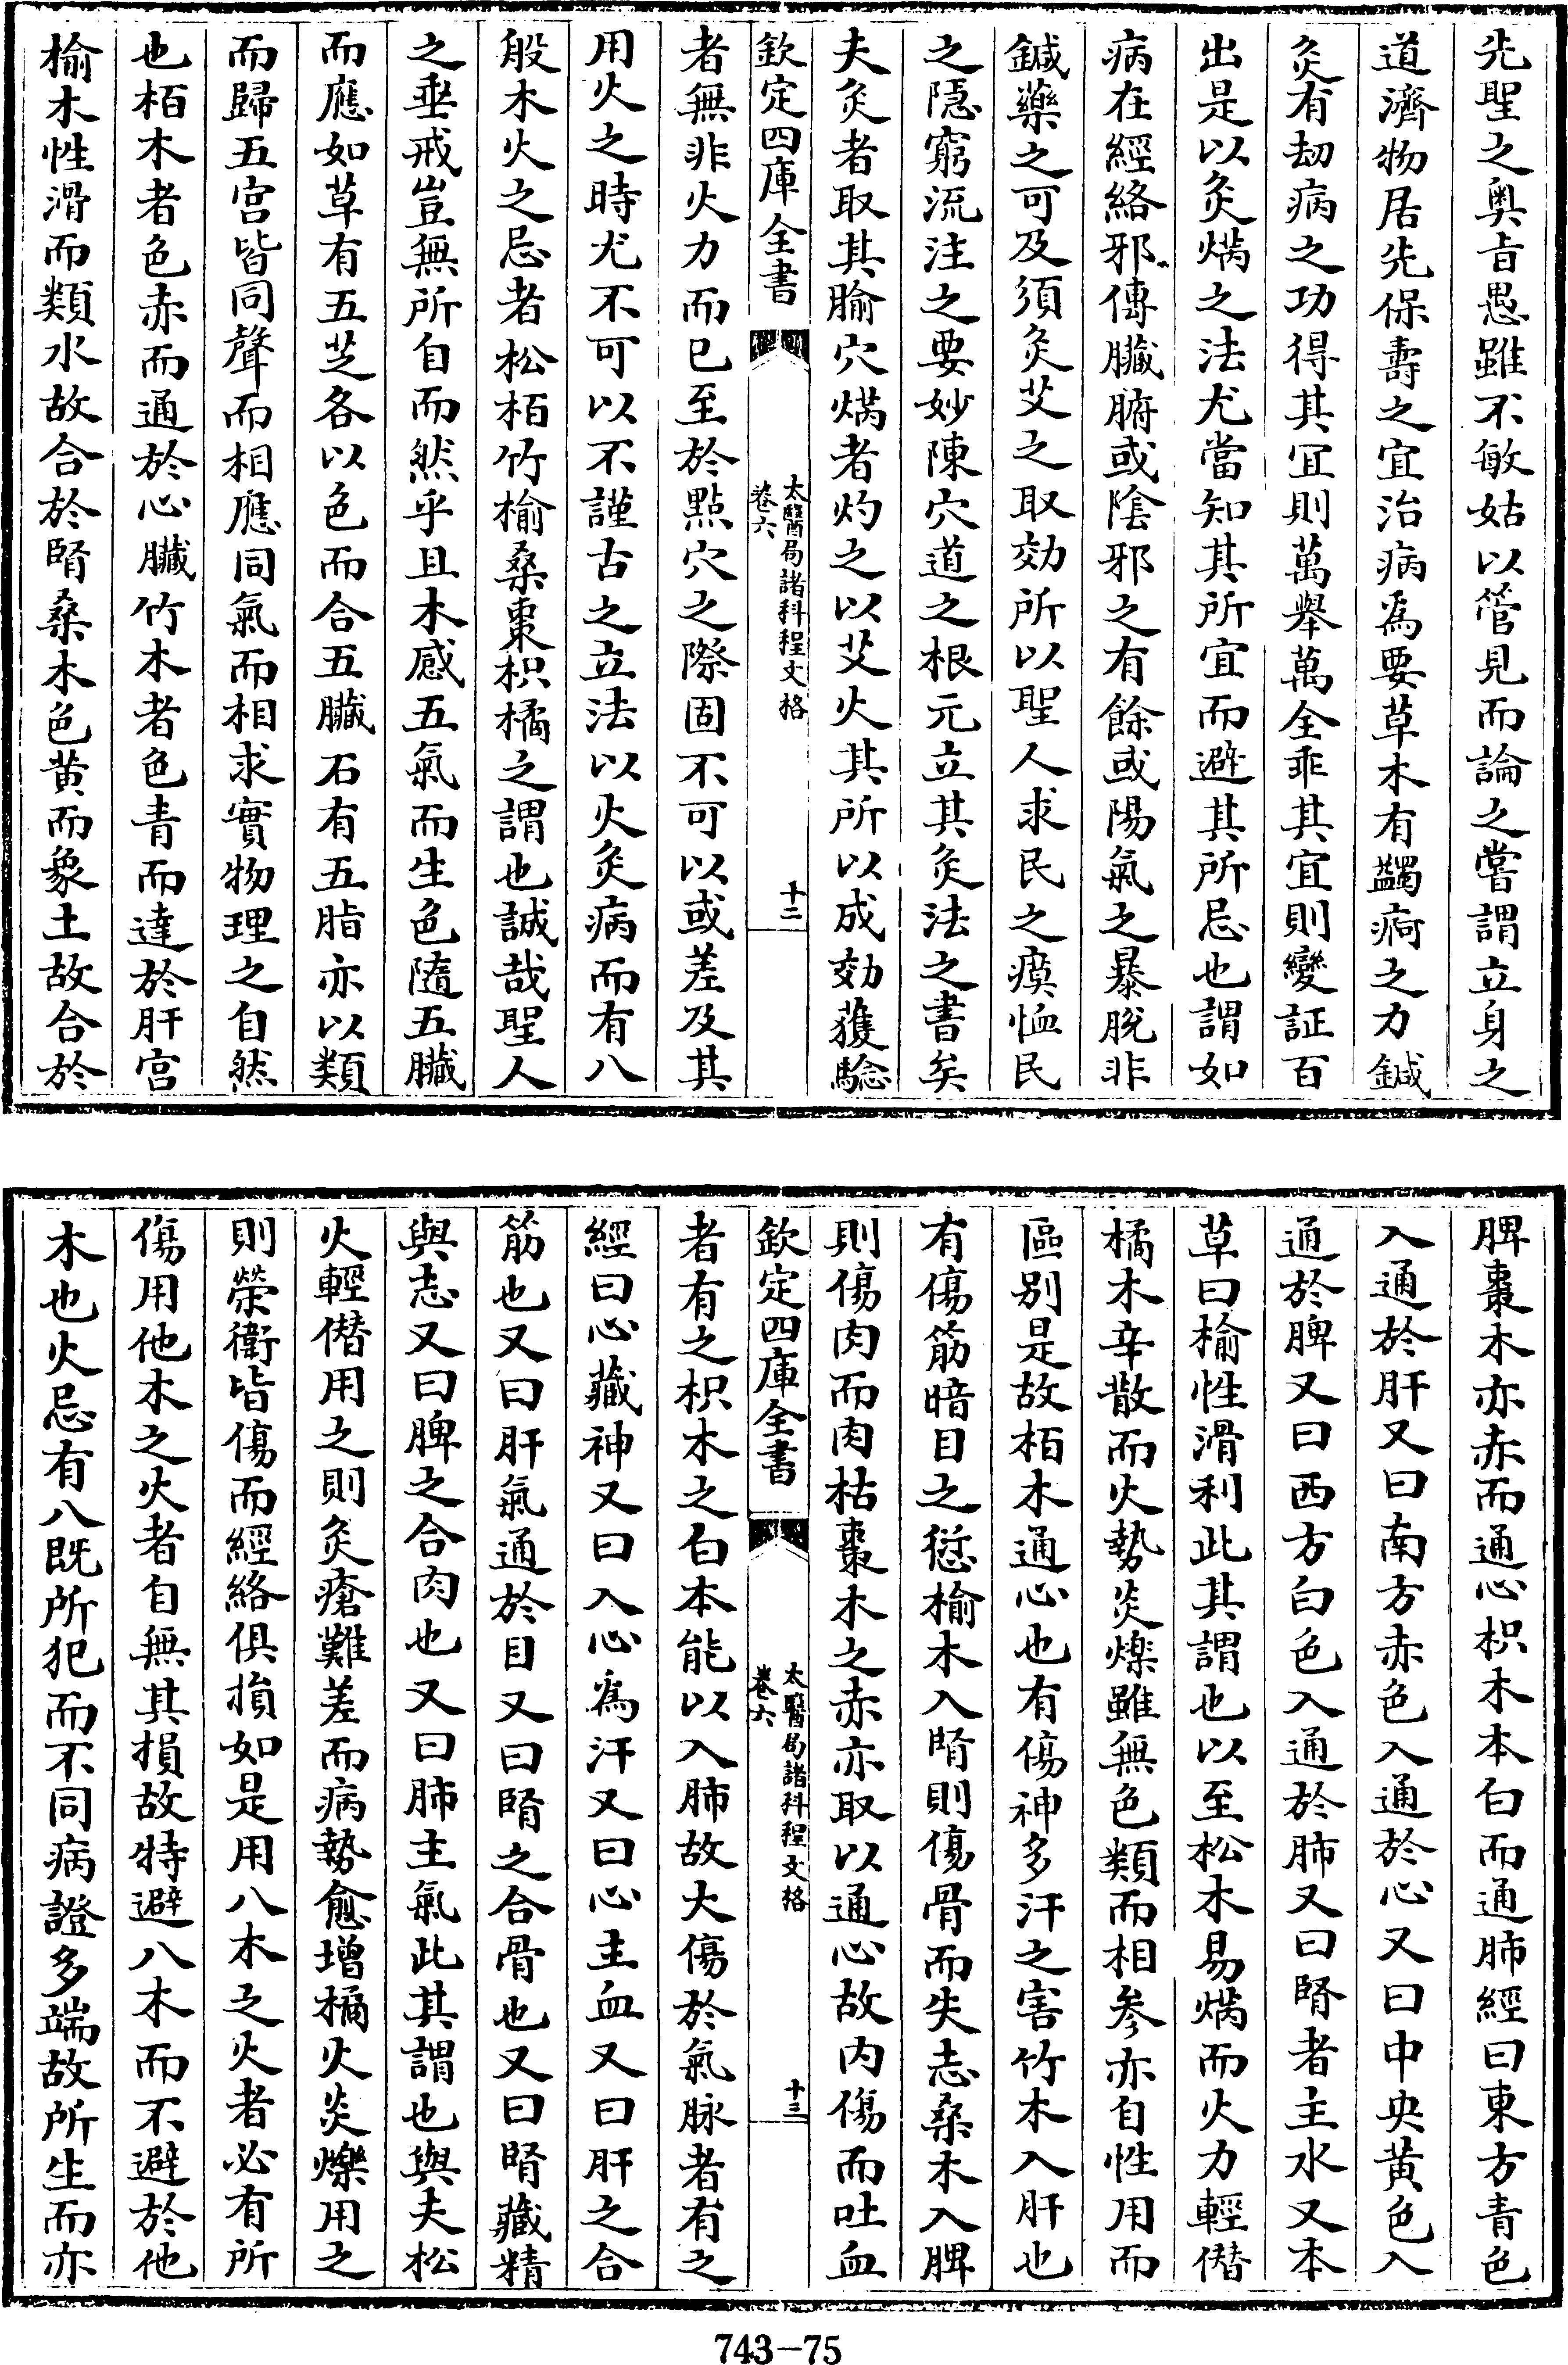 先聖之奥㫖愚雖不敏姑以管見而論之嘗謂立身之
道濟物居先保壽之宜治病為要草木有蠲痾之力鍼
灸有刼病之功得其宜則萬舉萬全乖其宜則變証百
出是以灸焫之法尤當知其所宜而避其所忌也謂如
病在經絡邪傳臟腑或隂邪之有餘或陽氣之暴脱非
鍼藥之可及須灸艾之取効所以聖人求民之瘼恤民
之隱窮流注之要妙陳穴道之根元立其灸法之書矣
夫灸者取其腧穴焫者灼之以艾火其所以成効獲驗
欽定四庫全書
太醫局諸科程文格
卷六
十二
者無非火力而已至於點穴之際固不可以或差及其
用火之時尤不可以不謹古之立法以火灸病而有八
般木火之忌者松栢竹榆桑棗枳橘之謂也誠哉聖人
之垂戒豈無所自而然乎且木感五氣而生色隨五臟
而應如草有五芝各以色而合五臟石有五脂亦以類
而歸五宫皆同聲而相應同氣而相求實物理之自然
也栢木者色赤而通於心臟竹木者色青而達於肝宫
榆木性滑而類水故合於腎桑木色黄而象土故合於
脾棗木亦赤而通心枳木本白而通肺經曰東方青色
入通於肝又曰南方赤色入通於心又曰中央黄色入
通於脾又曰西方白色入通於肺又曰腎者主水又本
草曰榆性滑利此其謂也以至松木易焫而火力輕僣
橘木辛散而火勢炎爍雖無色類而相參亦自性用而
區别是故栢木通心也有傷神多汗之害竹木入肝也
有傷筋暗目之愆榆木入腎則傷骨而失志桑木入脾
則傷肉而肉枯棗木之赤亦取以通心故内傷而吐血
欽定四庫全書
太醫局諸科程文格
卷六
十三
者有之枳木之白本能以入肺故大傷於氣脉者有之
經曰心藏神又曰入心為汗又曰心主血又曰肝之合
筋也又曰肝氣通於目又曰腎之合骨也又曰腎藏精
與志又曰脾之合肉也又曰肺主氣此其謂也與夫松
火輕僣用之則灸瘡難差而病勢愈增橘火炎爍用之
則榮衛皆傷而經絡俱損如是用八木之火者必有所
傷用他木之火者自無其損故特避八木而不避於他
木也火忌有八既所犯而不同病證多端故所生而亦
743-75